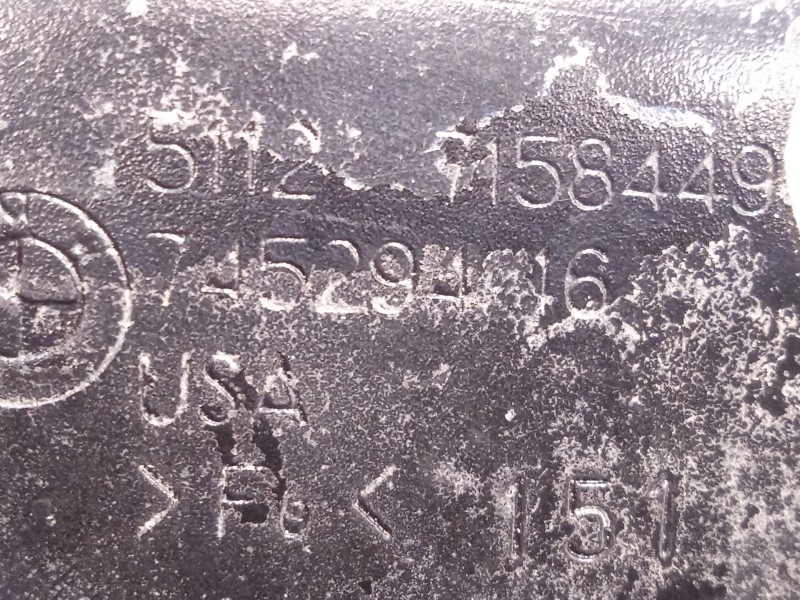 5112 7158449
7452944 16
USA
>Fe<
151